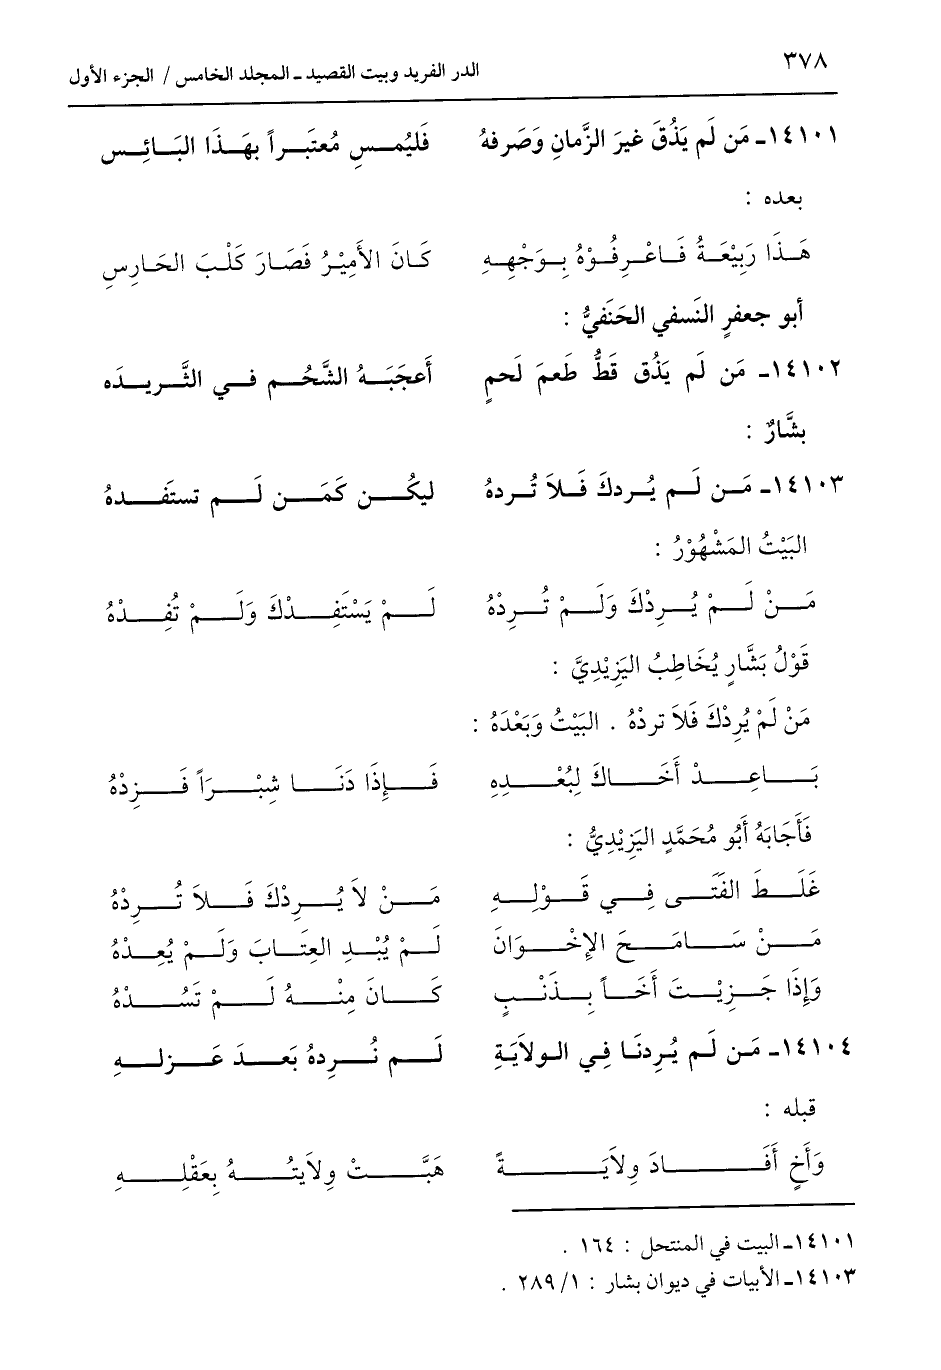 ٣٧٨
الدر الفريد وبيت القصيد ـ المجلد الخامس / الجزء الأول
١٤١٠١ـ مَن لَم يَذُقَ غيرَ الزَّمانِ وَصَرفهُ فَليُمسِ مُعتَبراً بهَذَا البَائِسِ
بعده :
هَذَا رَبِيْعَةُ فَاعْرِفُوْهُ بِوَجْهِهِ كَانَ الأَمِيْرُ فَصَارَ كَلْبَ الحَارِسِ
أبو جعفرٍ النَسفي الحَنَفيُّ :
١٤١٠٢ـ مَن لَم يَذُق قَطُّ طَعمَ لَحمٍ أَعجَبَهُ الشَّحُم في الثَّريدَه
بشَّارٌ :
١٤١٠٣ـ مَن لَم يُردكَ فَلاَ تُردهُ ليكُن كَمَن لَم تستَفَدهُ
البَيْتُ المَشْهُوْرُ :
مَنْ لَمْ يُرِدْكَ وَلَمْ تُرِدْهُ لَمْ يَسْتَفِدْكَ وَلَمْ تُفِدْهُ
قَوْلُ بَشَّارٍ يُخَاطِبُ اليَزِيْدِيَّ :
مَنْ لَمْ يُرِدْكَ فَلاَ تردْهُ . البَيْتُ وَبَعْدَهُ :
بَاعِدْ أَخَاكَ لِبُعْدِهِ فَإِذَا دَنَا شِبْرَاً فَزِدْهُ
فَأَجَابَهُ أَبُو مُحَمَّدٍ اليَزِيْدِيُّ :
غَلَطَ الفَتَى فِي قَوْلِهِ مَنْ لاَ يُرِدْكَ فَلاَ تُرِدْهُ
مَنْ سَامَحَ الإِخْوَانَ لَمْ يُبْدِ العِتَابَ وَلَمْ يُعِدْهُ
وَإِذَا جَزِيْتَ أَخَاً بِذَنْبٍ كَانَ مِنْهُ لَمْ تَسُدْهُ
١٤١٠٤ـ مَن لَم يُرِدنَا فِي الولاَيَةِ لَم نُرِدهُ بَعدَ عَزلهِ
قبله :
وَأَخٍ أَفَادَ وِلاَيَةً هَبَّتْ وِلاَيتُهُ بِعَقْلِهِ
١٤١٠١ـ البيت في المنتحل : ١٦٤ .
١٤١٠٣ـ الأبيات في ديوان بشار : ١/ ٢٨٩ .